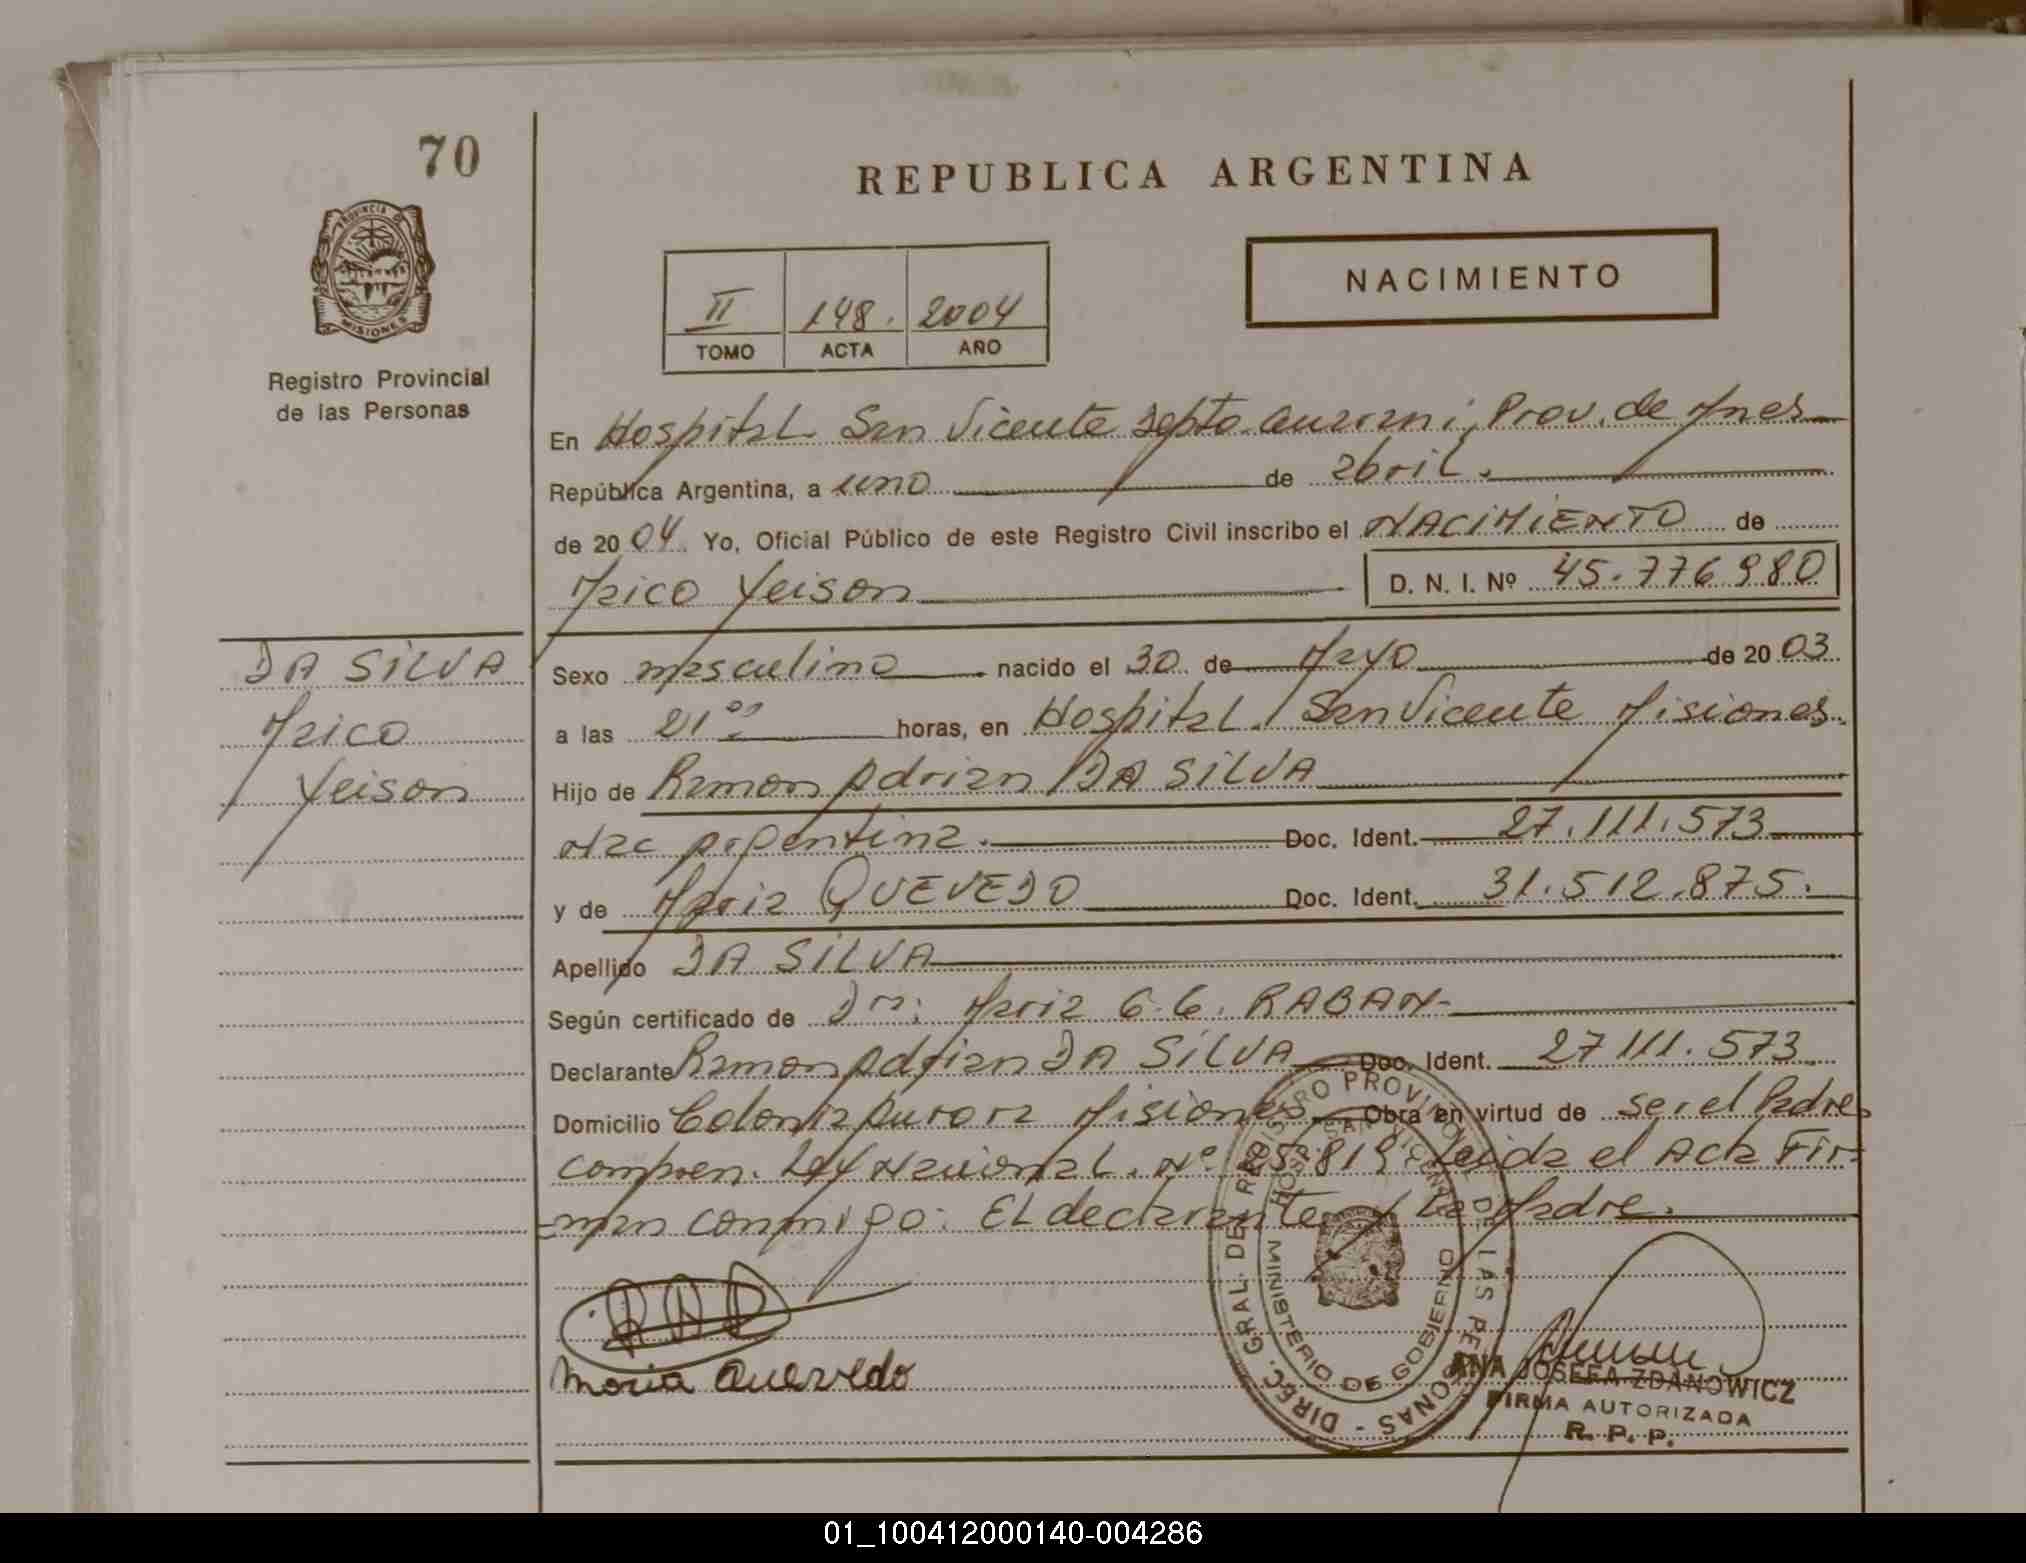 70
REPUBLICA ARGENTINA
PROVINCIA DE
MISIONES
Registro Provincial
de las Personas
NACIMIENTO
II 148. 2004
TOMO ACTA AÑO
En Hospital San Vicente Depto. Guarani, Prov. de Mnes
República Argentina, a uno de abril.
de 2004. Yo, Oficial Público de este Registro Civil inscribo el NACIMIENTO de
Maico Yeison D. N. I. Nº 45.776980
DA SILVA
Maico
Yeison
Sexo masculino nacido el 30 de Mayo de 2003
a las 21 horas, en Hospital San Vicente Misiones.
Hijo de Ramon Adrian DA SILVA
Nac Argentina. Doc. Ident. 27.111.573
y de Maria QUEVEDO Doc. Ident. 31.512.875.
Apellido DA SILVA
Según certificado de Dra: Maria G. G. RABAN
Declarante Ramon Adrian DA SILVA Doc. Ident. 27111.573
Domicilio Colonia Aurora Misiones Obra en virtud de ser el Padre
Compren. Ley Nacional. Nº 25.819. Leida el Acta Fir-
-man conmigo: El declarante y la Madre.
DIREC. GRAL. DEL REGISTRO PROVINCIAL DE LAS PERSONAS -
MINISTERIO DE GOBIERNO
Maria Quevedo
ANA JOSEFA ZDANOWICZ
FIRMA AUTORIZADA
R. P. P.
01_100412000140-004286